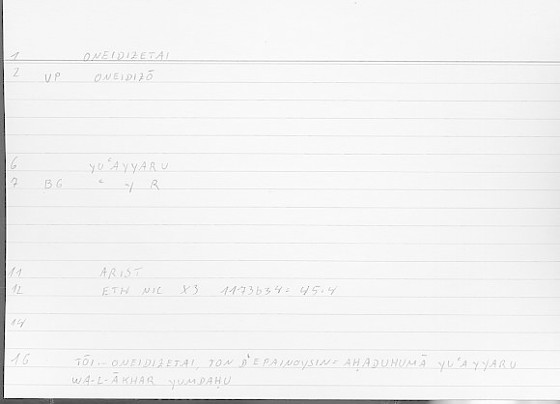 1 ONEIDIZETAI
2 VP ONEIDIZŌ
6 YUʿAYYARU
7 BG ʿ-Y R
11 ARIST
12 ETH NIC X3 1173b34 = 45.4
14
16 TŌI... ONEIDIZETAI, TON D'EPAINOYSIN = AḤADUHUMĀ YUʿAYYARU
WA-L-ĀKHAR YUMDAḤU